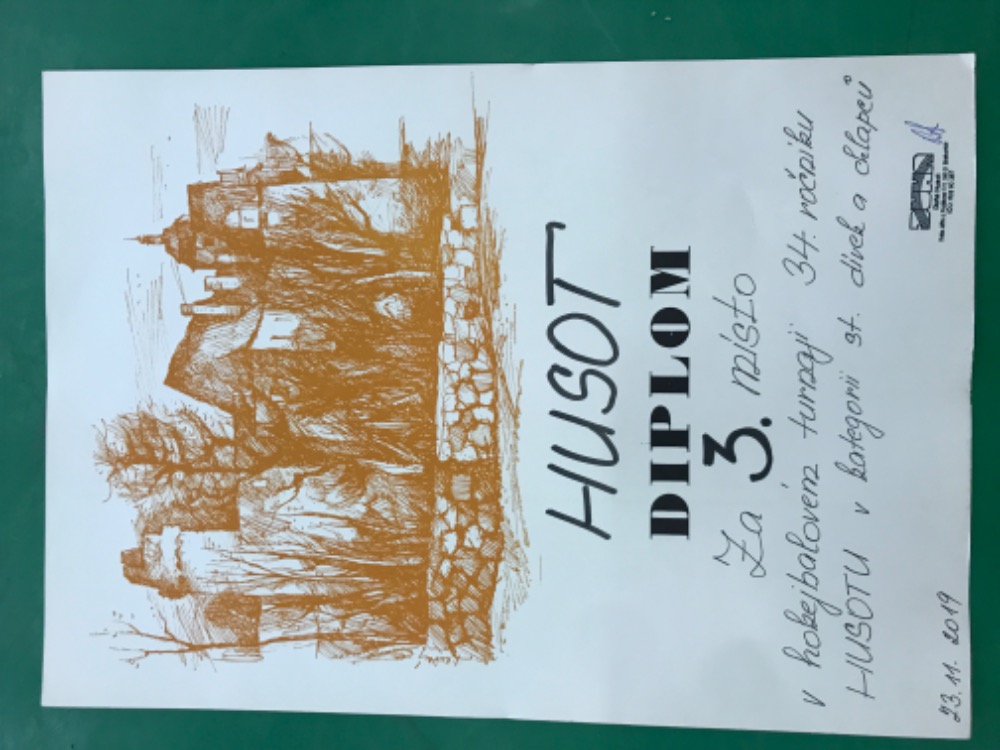 HUSOT
DIPLOM
Za 3. místo
v hokejbalovém turnaji 34. ročníku
HUSOTU v kategorii st. dívek a chlapců
23.11. 2019